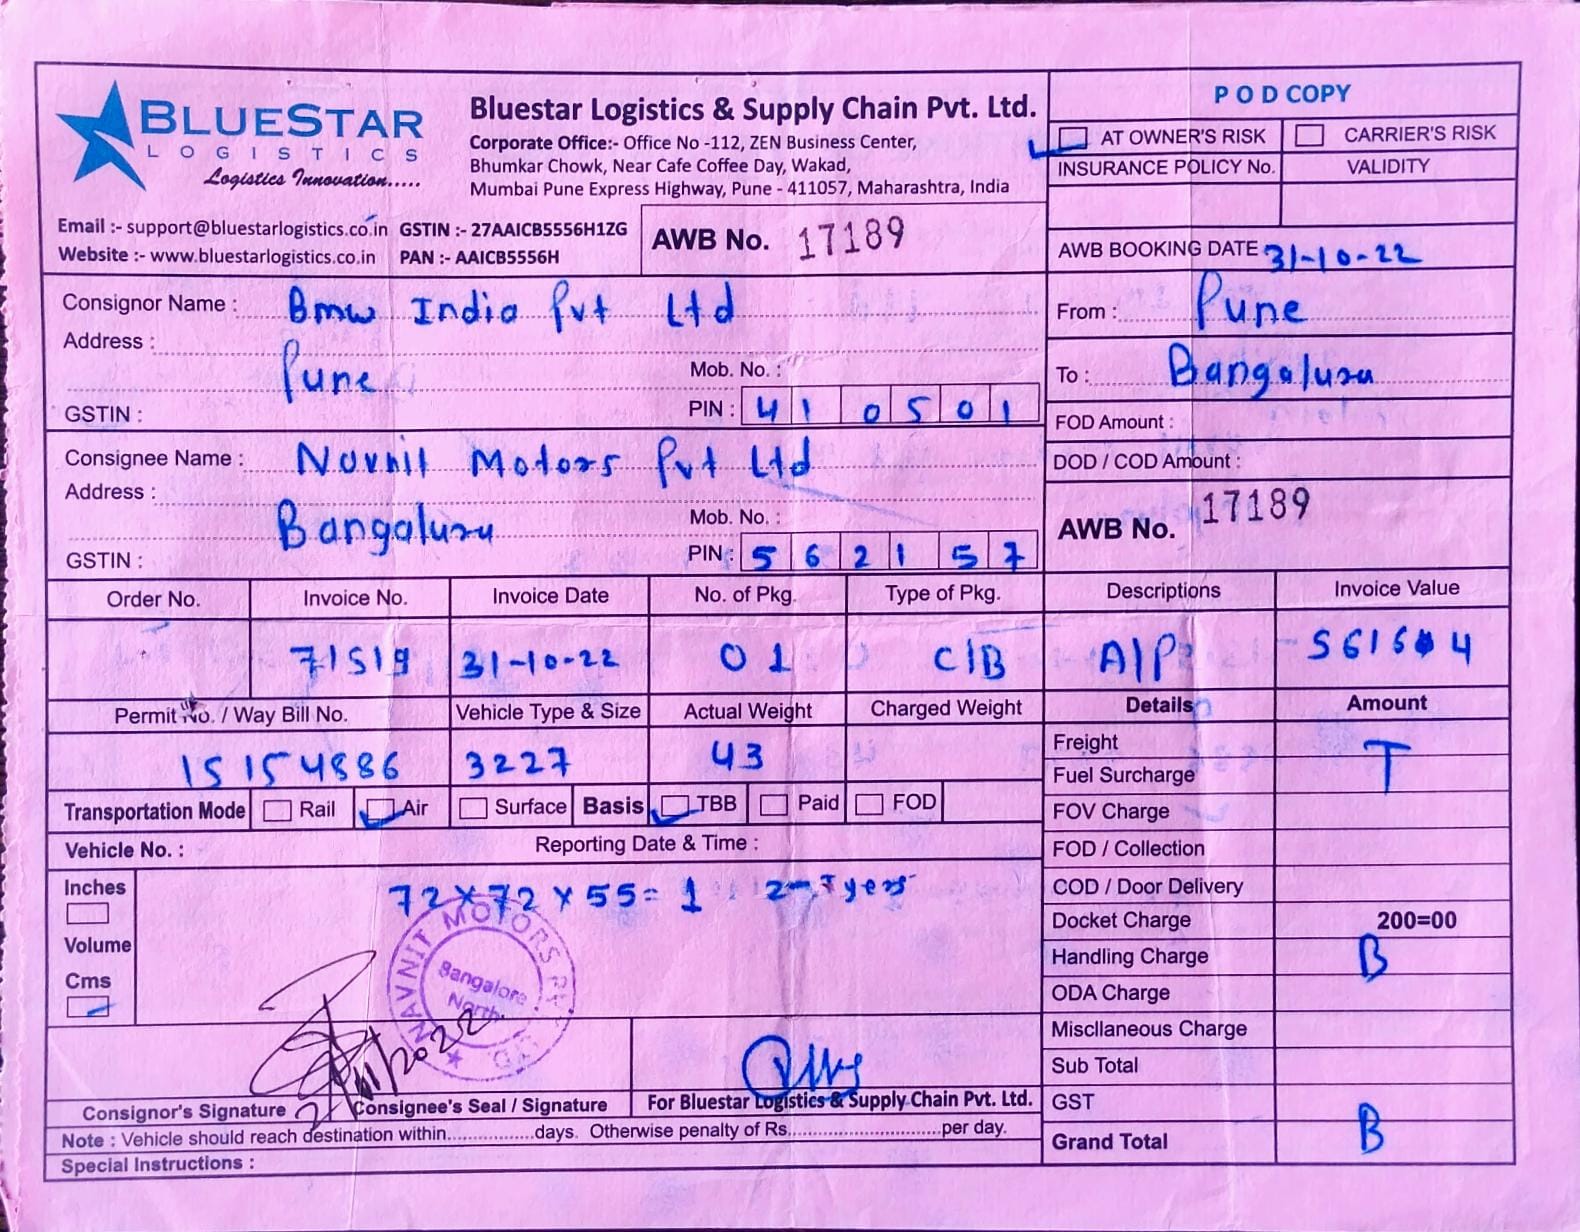 BLUESTAR
LOGISTICS
Logistics Innovation.....
Bluestar Logistics & Supply Chain Pvt. Ltd.
Corporate Office:- Office No -112, ZEN Business Center,
Bhumkar Chowk, Near Cafe Coffee Day, Wakad,
Mumbai Pune Express Highway, Pune - 411057, Maharashtra, India
Email :- support@bluestarlogistics.co.in GSTIN :- 27AAICB5556H1ZG
Website :- www.bluestarlogistics.co.in PAN :- AAICB5556H
AWB No. 17189
POD COPY
AT OWNER'S RISK CARRIER'S RISK
INSURANCE POLICY No. VALIDITY
AWB BOOKING DATE 31-10-22
From : Pune
To : Bangaluru
FOD Amount :
DOD / COD Amount :
AWB No. 17189
Consignor Name : Bmw India Pvt Ltd
Address :
Pune Mob. No. :
GSTIN : PIN : 410501
Consignee Name : Navnit Motors Pvt Ltd
Address :
Bangaluru Mob. No. :
GSTIN : PIN : 562157
Order No. Invoice No. Invoice Date No. of Pkg. Type of Pkg. Descriptions Invoice Value
71519 31-10-22 01 C/B A/P
Permit No. / Way Bill No. Vehicle Type & Size Actual Weight Charged Weight Details Amount
15154886 3227 43
Transportation Mode Rail Air Surface Basis TBB Paid FOD
Vehicle No. : Reporting Date & Time :
Inches
Volume
Cms
72x72x55=1
NAVNIT MOTORS PVT. LTD.
Bangalore
North
Freight T
Fuel Surcharge
FOV Charge
FOD / Collection
COD / Door Delivery
Docket Charge 200=00
Handling Charge B
ODA Charge
Miscllaneous Charge
Sub Total
GST
Grand Total B
Consignor's Signature Consignee's Seal / Signature For Bluestar Logistics & Supply Chain Pvt. Ltd.
Note : Vehicle should reach destination within.................days. Otherwise penalty of Rs..............................per day.
Special Instructions :